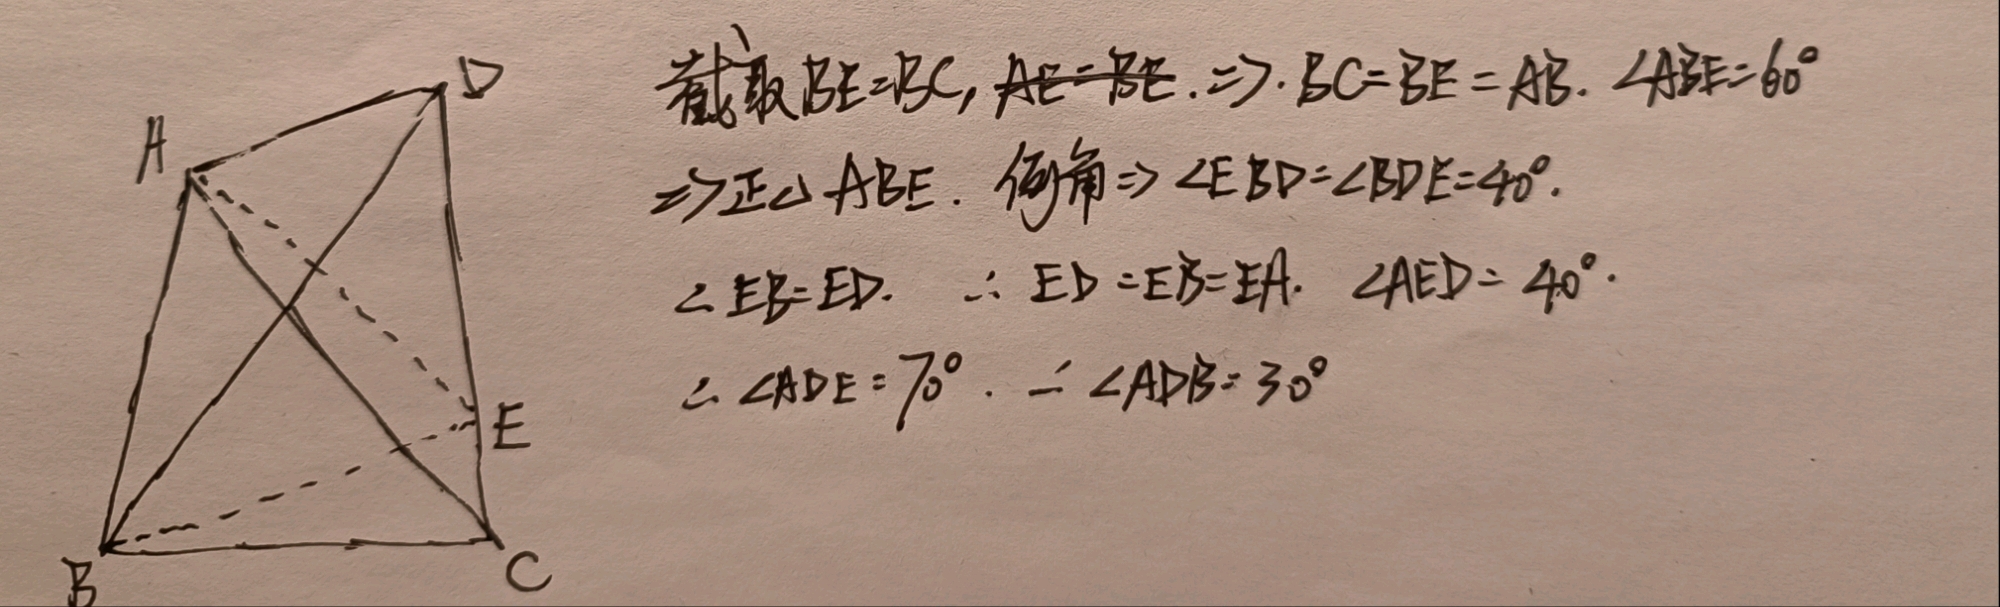 截取BE=BC, AE=BE. => BC=BE=AB. ∠ABE=60°
=>正△ABE. 倒角=>∠EBD=∠BDE=40°.
∴EB=ED. ∴ED=EB=EA. ∠AED=40°.
∴∠ADE=70°. ∴∠ADB=30°
D
A
E
B
C